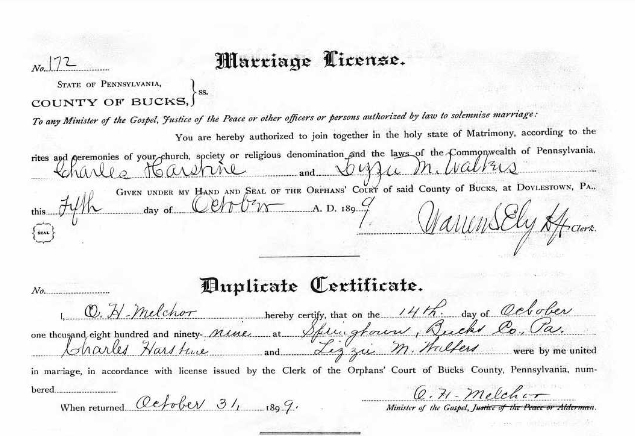 Marriage License.
No. 172
STATE OF PENNSYLVANIA,
COUNTY OF BUCKS, } ss.
To any Minister of the Gospel, Justice of the Peace or other officers or persons authorized by law to solemnise marriage:
You are hereby authorized to join together in the holy state of Matrimony, according to the
rites and ceremonies of your church, society or religious denomination and the laws of the Commonwealth of Pennsylvania,
Charles Harstine and Lizzie M. Walters
GIVEN UNDER MY HAND AND SEAL OF THE ORPHANS' COURT OF said COUNTY OF BUCKS, AT DOYLESTOWN, PA.,
this Fifth day of October A. D. 1899.
SEAL
Warren S Ely Clerk.
Duplicate Certificate.
No.
I, O. H. Melchor hereby certify, that on the 14th. day of October
one thousand eight hundred and ninety-nine at Springtown, Bucks Co. Pa.
Charles Harstine and Lizzie M. Walters were by me united
in marriage, in accordance with license issued by the Clerk of the Orphans' Court of Bucks County, Pennsylvania, num-
bered
O. H. Melchor
When returned October 31, 1899. Minister of the Gospel, Justice of the Peace or Alderman.